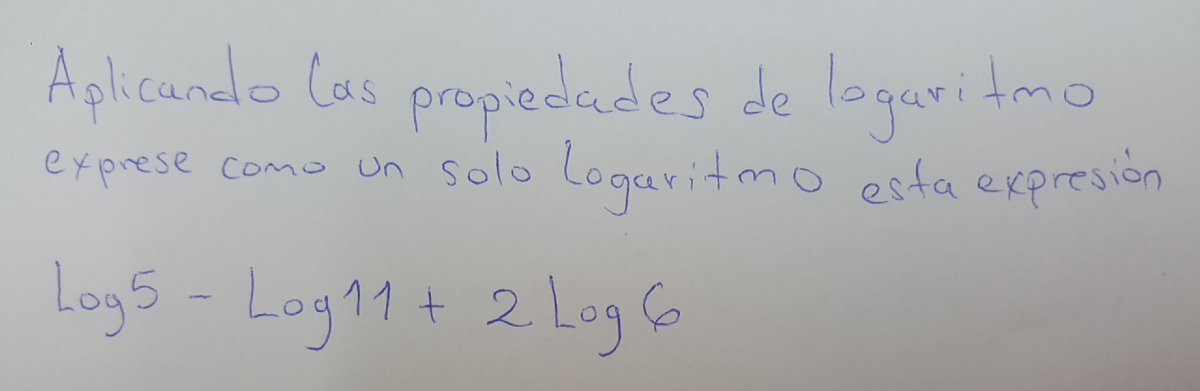 Aplicando las propiedades de logaritmo
exprese como un solo logaritmo esta expresión
Log5 - Log11 + 2Log6